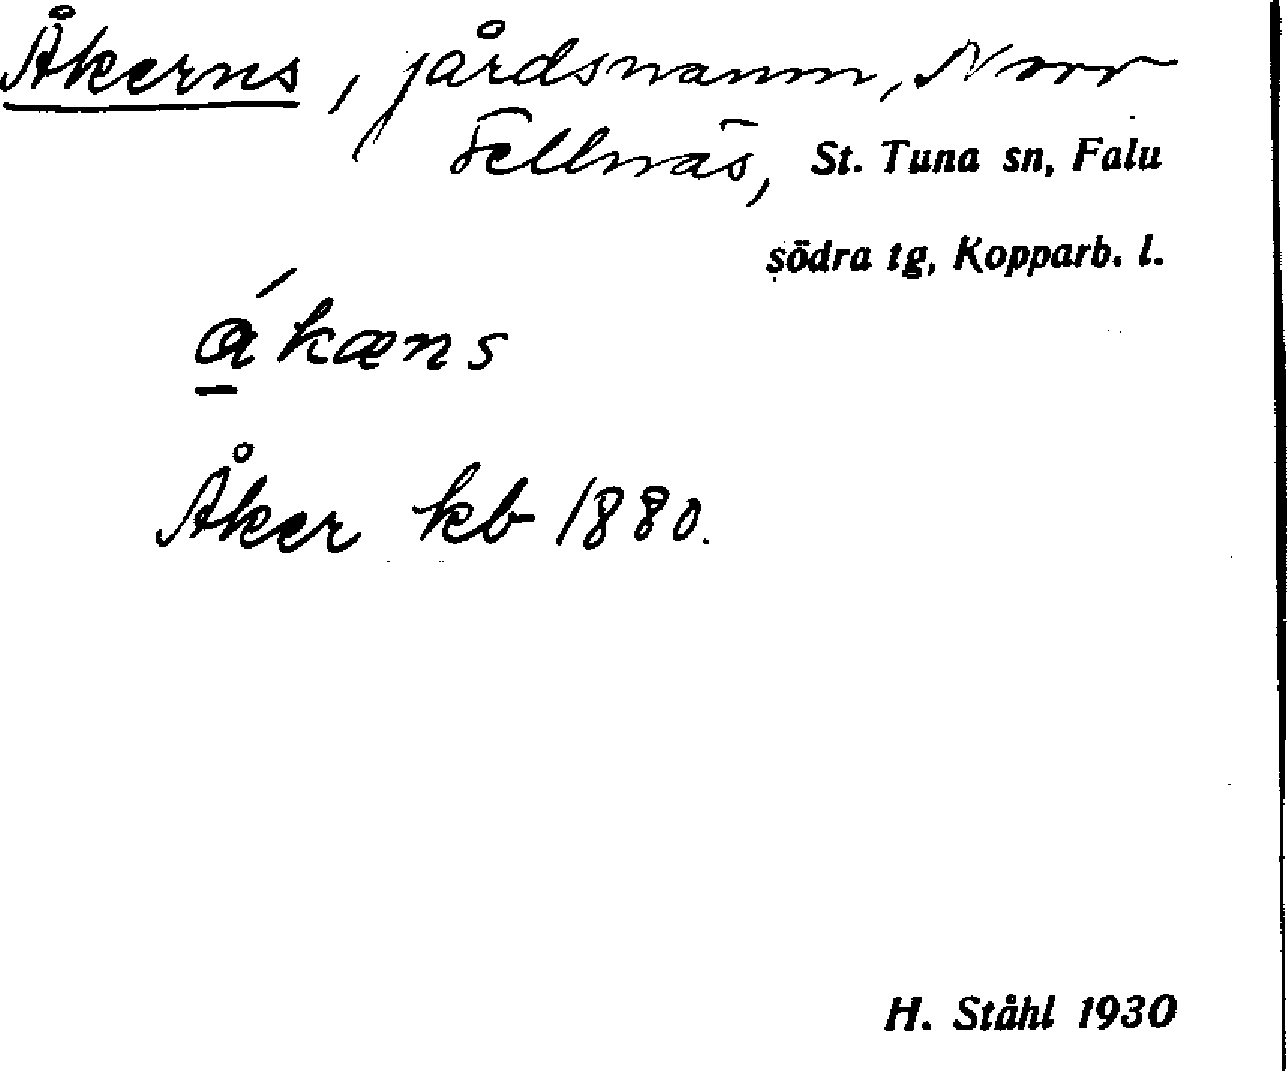 Åkerns, gårdsnamn, Norr
Tellnäs, St. Tuna sn, Falu
södra tg, Kopparb. l.
á̱kæns
Åker kb 1880.
H. Ståhl 1930